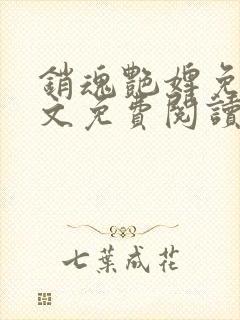 銷魂艷婢免
文免費閱讀
七葉成花